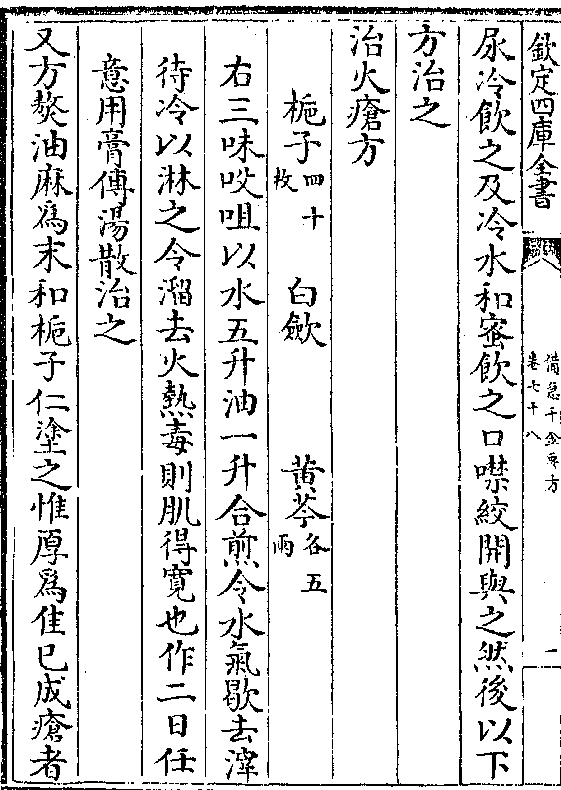 欽定四庫全書
備急千金要方
卷七十八
一
尿冷飲之及冷水和蜜飲之口噤絞開與之然後以下
方治之
治火瘡方
梔子四十枚 白斂 黄芩各五兩
右三味㕮咀以水五升油一升合煎令水氣歇去滓
待冷以淋之令溜去火熱毒則肌得寛也作二日任
意用膏傅湯散治之
又方熬油麻爲末和梔子仁塗之惟厚爲佳已成瘡者